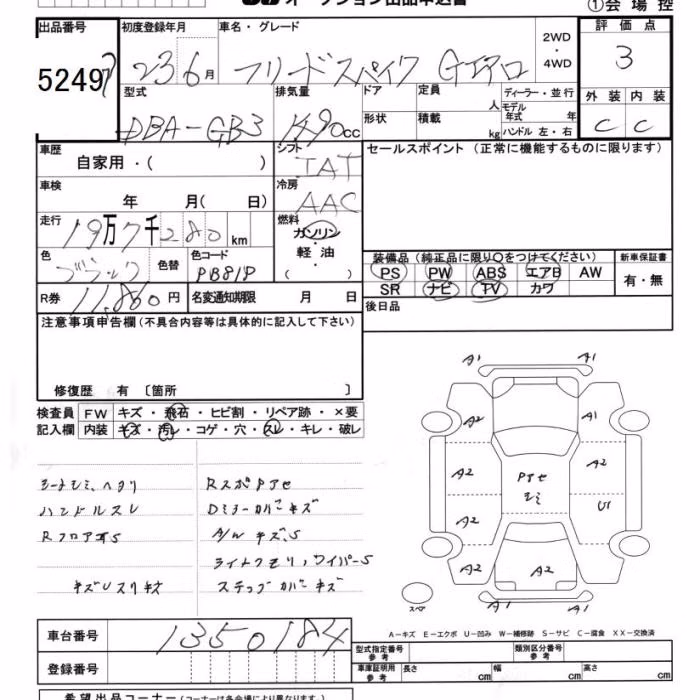 オークション出品申込書
①会場控
出品番号 初度登録年月 車名・グレード 2WD・4WD 評価点
5249 23 6月 フリードスパイク Gエアロ 3
型式 排気量 ドア 定員 人 ディーラー・並行 外装 内装
DBA-GB3 1490cc 形状 積載 kg モデル年式 年 ハンドル 左・右 C C
車歴 自家用・( ) シフト IAT セールスポイント (正常に機能するものに限ります)
車検 年 月( 日) 冷房 AAC
走行 19万7千280km 燃料 ガソリン
軽油
・( )
色 ブラック 色替 色コード PB81P
装備品 (純正品に限り○をつけてください) 新車保証書
PS PW ABS エアB AW 有・無
SR ナビ TV カワ
R券 11,860円 名変通知期限 月 日 後日品
注意事項申告欄 (不具合内容等は具体的に記入して下さい)
修復歴 有 〔箇所 〕
検査員 FW キズ・飛石・ヒビ割・リペア跡・×要
記入欄 内装 キズ・汚レ・コゲ・穴・スレ・キレ・破レ
シートシミ、ヘタリ RスポPアセ
ハンドルスレ Dミラーカバーキズ
A/Wキズ、S
ライトクモリ、ワイパーS
キズUスリキズ ステップカバーキズ
A1 A1
A2 A1
A2 Pアセ シミ A2
A2 U1
A2 A2 A2
A1 A1
スペア
A-キズ E-エクボ U-凹み W-補修跡 S-サビ C-腐食 XX-交換済
車台番号 1350184
登録番号
型式指定番号 参考 類別区分番号 参考
車庫証明用 参考 長さ cm 幅 cm 高さ cm
希望出品コーナー (コーナーは各会場により異なります)